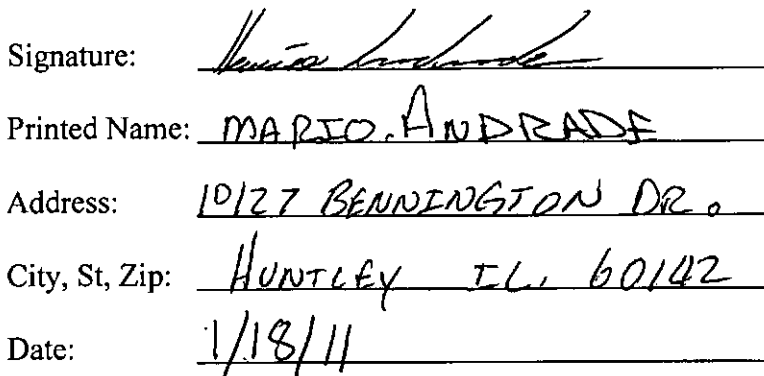 Signature:
Printed Name: MARIO. ANDRADE
Address: 10127 BENNINGTON DR.
City, St, Zip: HUNTLEY IL. 60142
Date: 1/18/11